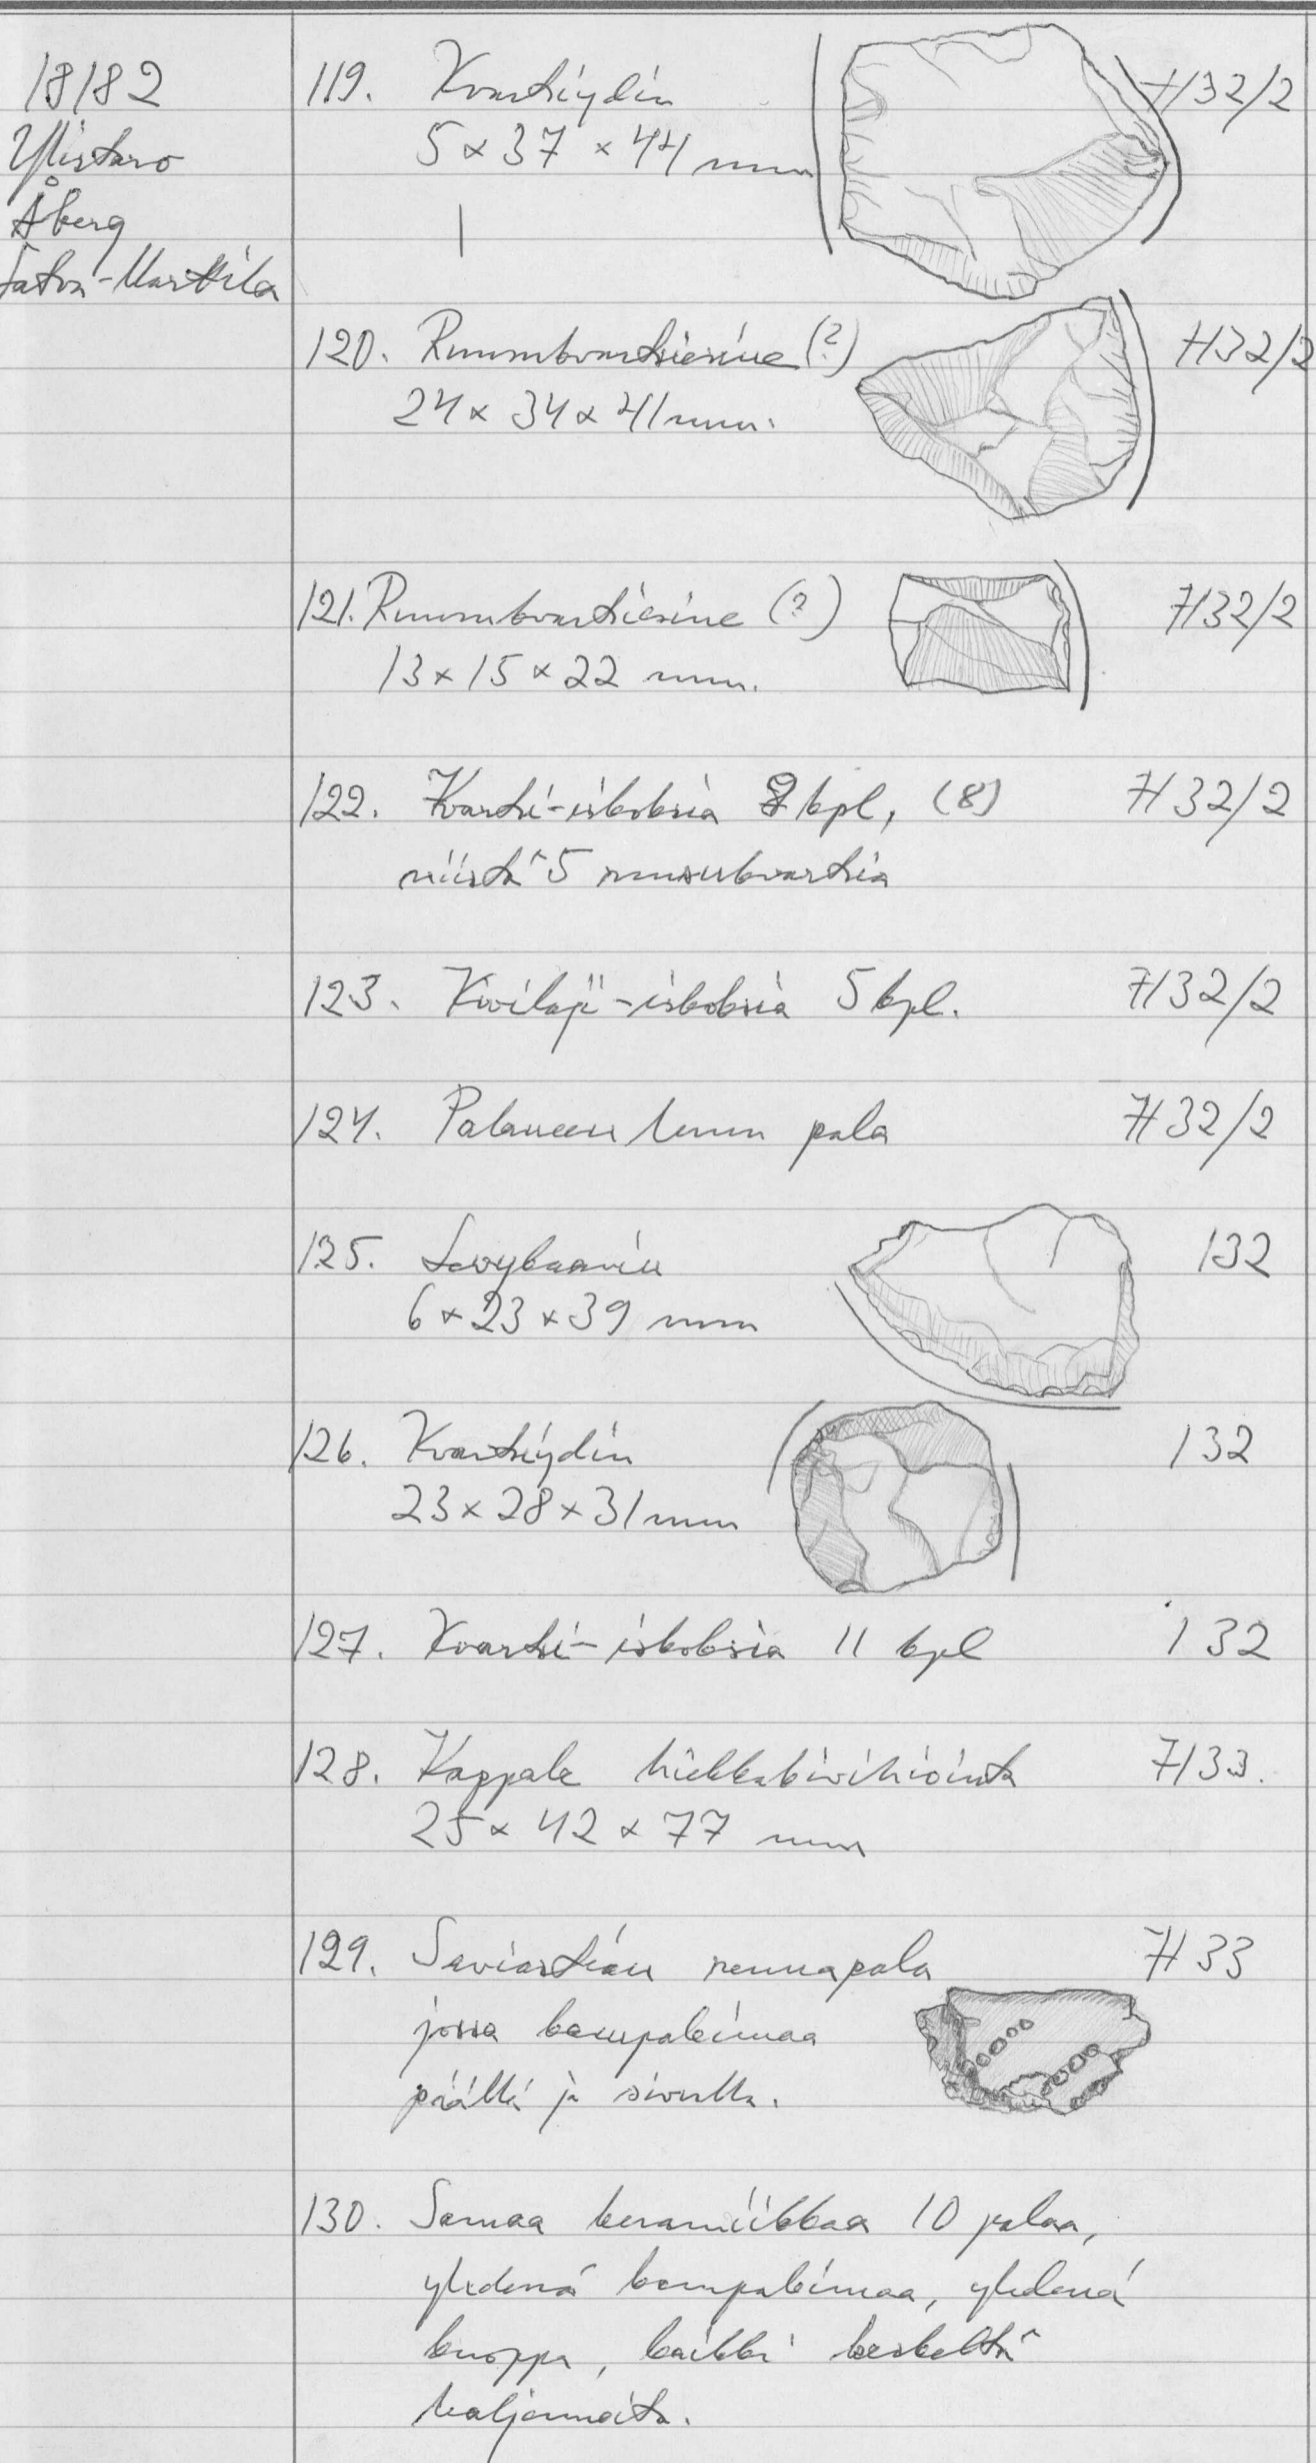 18182
Ylistaro
Åberg
Latva-Marttila
119. Kvartsiydin H32/2
5 x 37 x 44 mm
120. Ruumkvartsiesine (?) H32/2
24 x 34 x 41 mm.
121. Ruumkvartsiesine (?) H32/2
13 x 15 x 22 mm.
122. Kvartsi-iskoksia 8 kpl, (8) H32/2
niistä 5 ruusukvartsia
123. Kivilaji-iskoksia 5 kpl. H32/2
124. Palaneen luun pala H32/2
125. Levykaavin I32
6 x 23 x 39 mm
126. Kvartsiydin I32
23 x 28 x 31 mm
127. Kvartsi-iskoksia 11 kpl I32
128. Kappale hiekkakivihiointa H33.
25 x 42 x 77 mm
129. Saviastian reunapala H33
jossa kampaleimaa
päältä ja sivulta.
130. Samaa keramiikkaa 10 palaa,
yhdessä kampaleimaa, yhdessä
kuoppa, kaikki keskeltä
haljenneita.